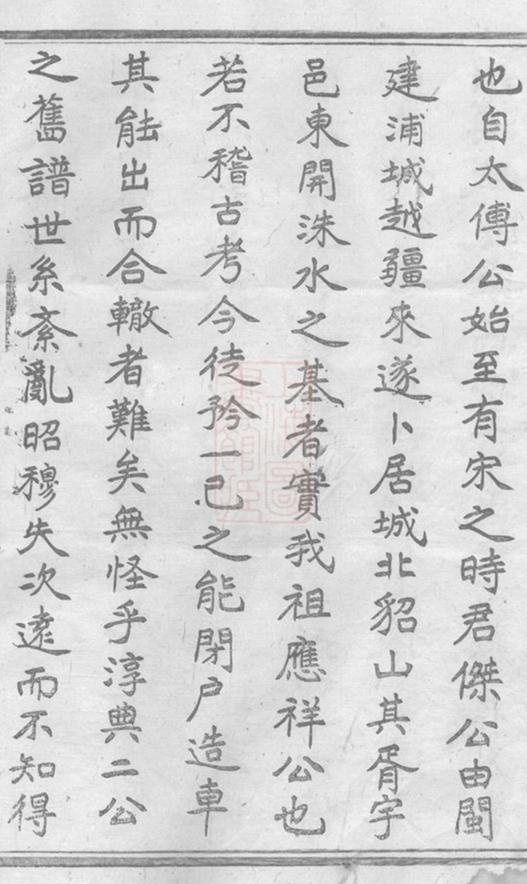 也自太傅公始至有宋之時君傑公由閩
建浦城越疆來遂卜居城北貂山其胥宇
邑東開洙水之基者實我祖應祥公也
若不稽古考今徒矜一己之能閉户造車
其能出而合轍者難矣無怪乎淳典二公
之舊譜世系紊亂昭穆失次遠而不知得